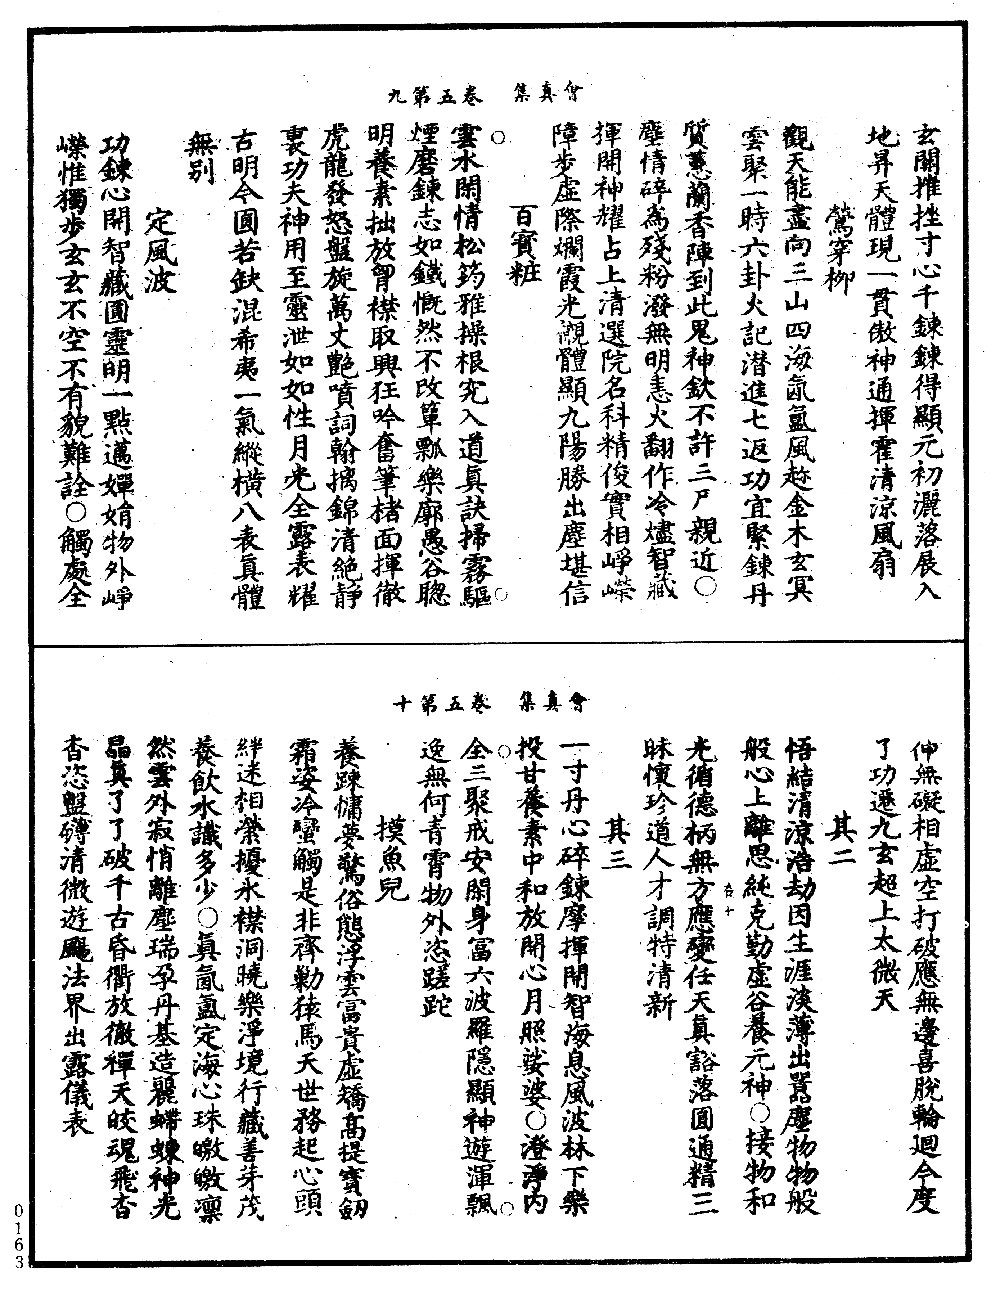 會真集　卷五第九
玄關摧挫寸心千鍊鍊得顯元初灑落展入
地昇天體現一貫傲神通揮霍清涼風扇
鶯穿柳
觀天能盡向三山四海氤氳風趂金木玄冥
雲聚一時六卦火記潛進七返功宜緊鍊丹
質蕙蘭香陣到此鬼神欽不許三尸親近○
塵情碎為殘粉潑無明恚火翻作冷燼智藏
揮開神耀占上清選院名科精俊實相崢嶸
障步虛際斕霞光襯體顯九陽勝出塵堪信
百寶粧
雲水閑情松筠雅操根究入道真訣掃霧驅
煙磨鍊志如鐵慨然不改簞瓢樂廓愚谷聰
明養素拙放胷襟取興狂吟奮筆楮面揮徹
虎龍發怒盤旋萬丈艷噴詞翰摛錦清絕靜
裏功夫神用至靈泄如如性月光全露表耀
古明今圓若缺混希夷一氣縱橫八表真體
無别
定風波
功鍊心開智藏圓靈明一點邁嬋娟物外崢
嶸惟獨步玄玄不空不有貌難詮○觸處全
會真集　卷五第十
伸無礙相虛空打破應無邊喜脫輪迴今度
了功遷九玄超上太微天
其二
悟結清涼浩劫因生涯淡薄出囂塵物物般
般心上離思純克勤虛谷養元神○接物和
光循德柄無方應變任天真豁落圓通精三
昧懷珍道人才調特清新
其三
一寸丹心碎鍊摩揮開智海息風波林下樂
投甘養素中和放開心月照娑婆○澄淨内
全三聚戒安閑身富六波羅隱顯神遊渾飄
逸無何青霄物外恣蹉跎
摸魚兒
養踈慵夢驚俗態浮雲富貴虛矯高提寶劒
霜姿冷蠻觸是非齊勦猿馬夭世務起心頭
絆迷相縈擾氷襟洞曉樂淨境行藏善芽茂
養飲水識多少○真氤氳定海心珠皦皦凛
然雲外寂悄離塵瑞孕丹基造麗蟒蝀神光
晶真了了破千古昏衢放徹禪天皎魂飛杳
杳恣盤礴清微遊颺法界出露儀表
0163